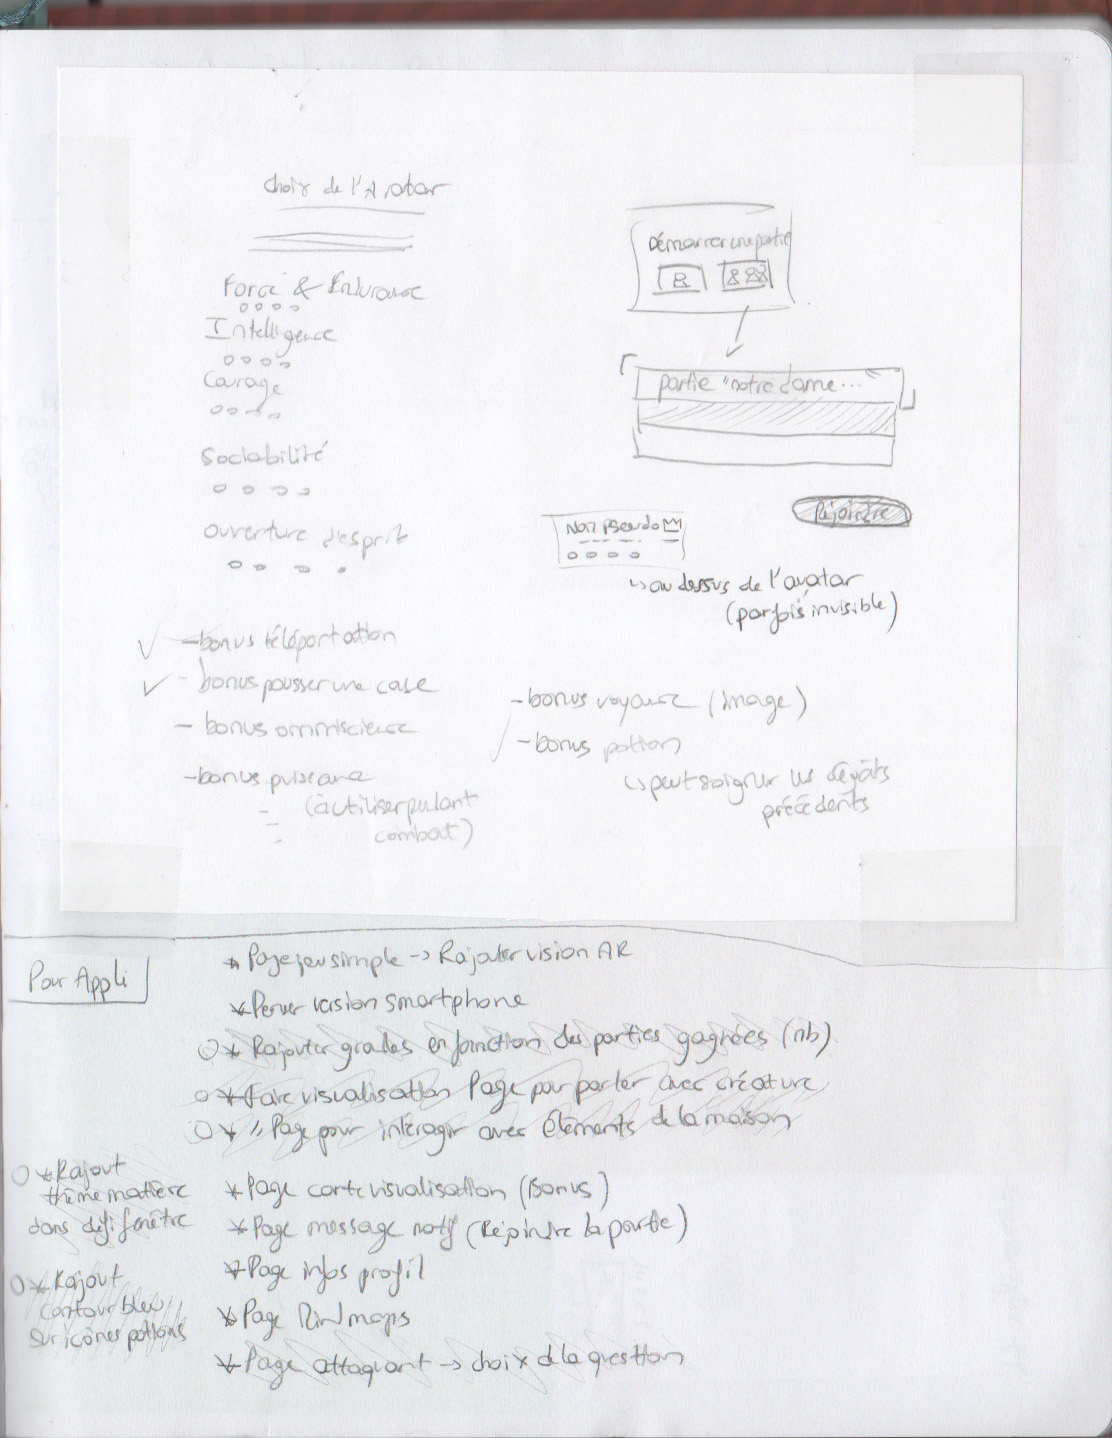 choix de l'Avatar
Force & Endurance
Intelligence
Courage
Sociabilité
ouverture d'esprit
Démarrer une partie
partie "notre dame..."
Rejoindre
Nom pseudo
↳ au dessus de l'avatar
(parfois invisible)
- bonus téléportation
- bonus pousser une case
- bonus ommiscience
- bonus puissance
(à utiliser pdant
combat)
- bonus voyance (image)
- bonus potion
↳ peut soigner les dégâts
précédents
Pour Appli
* Page jeu simple -> Rajouter vision AR
* Penser version smartphone
* Rajouter grades en fonction des parties gagnées (nb)
* Faire visualisation Page pour parler avec créature
* " Page pour intéragir avec éléments de la maison
* Rajout
thème matière
dans défi fenêtre
* Rajout
contour bleu
sur icônes potions
* Page carte visualisation (Bonus)
* Page message notif (Rejoindre la partie)
* Page infos profil
* Page maps
* Page attaquant -> choix d la question